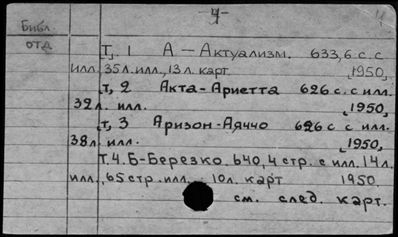 -4-
4
Библ.
отд
т, 1 А — Актуализм. 633,6 с. с
илл, 35 л. илл., 13 л. карт [1950,
т, 2 Акта-Ариетта 626 с. с илл.
32 л. илл. [1950,
т, 3 Аризон-Аяччо 626 с с илл.
38 л. илл. [1950,
Т. 4. Б-Березко. 640, 4 стр. с илл. 14 л.
илл., 65 стр. илл. 10 л. карт 1950.
см. след. карт.